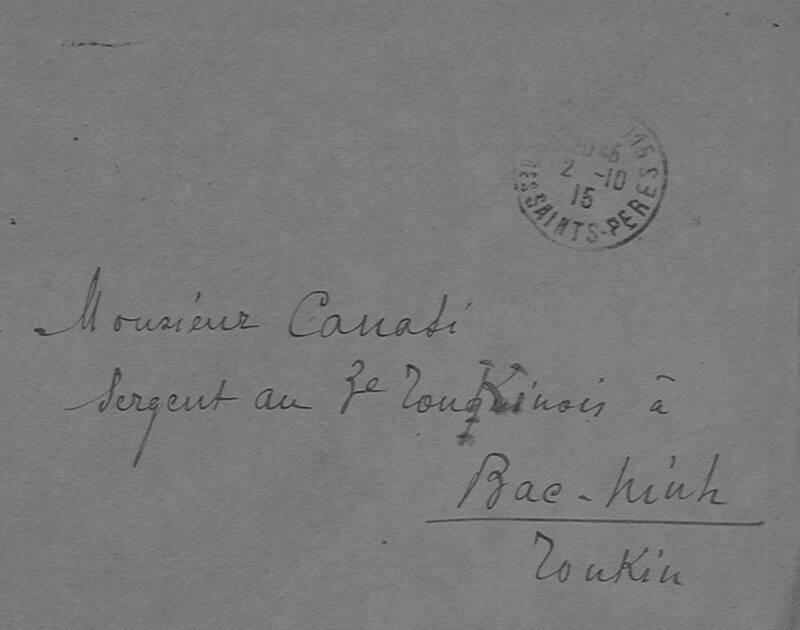 15
10 45
2 -10
15
DES SAINTS-PERES
Monsieur Canati
Sergent au 3e Tonkinois à
Bac-ninh
Tonkin